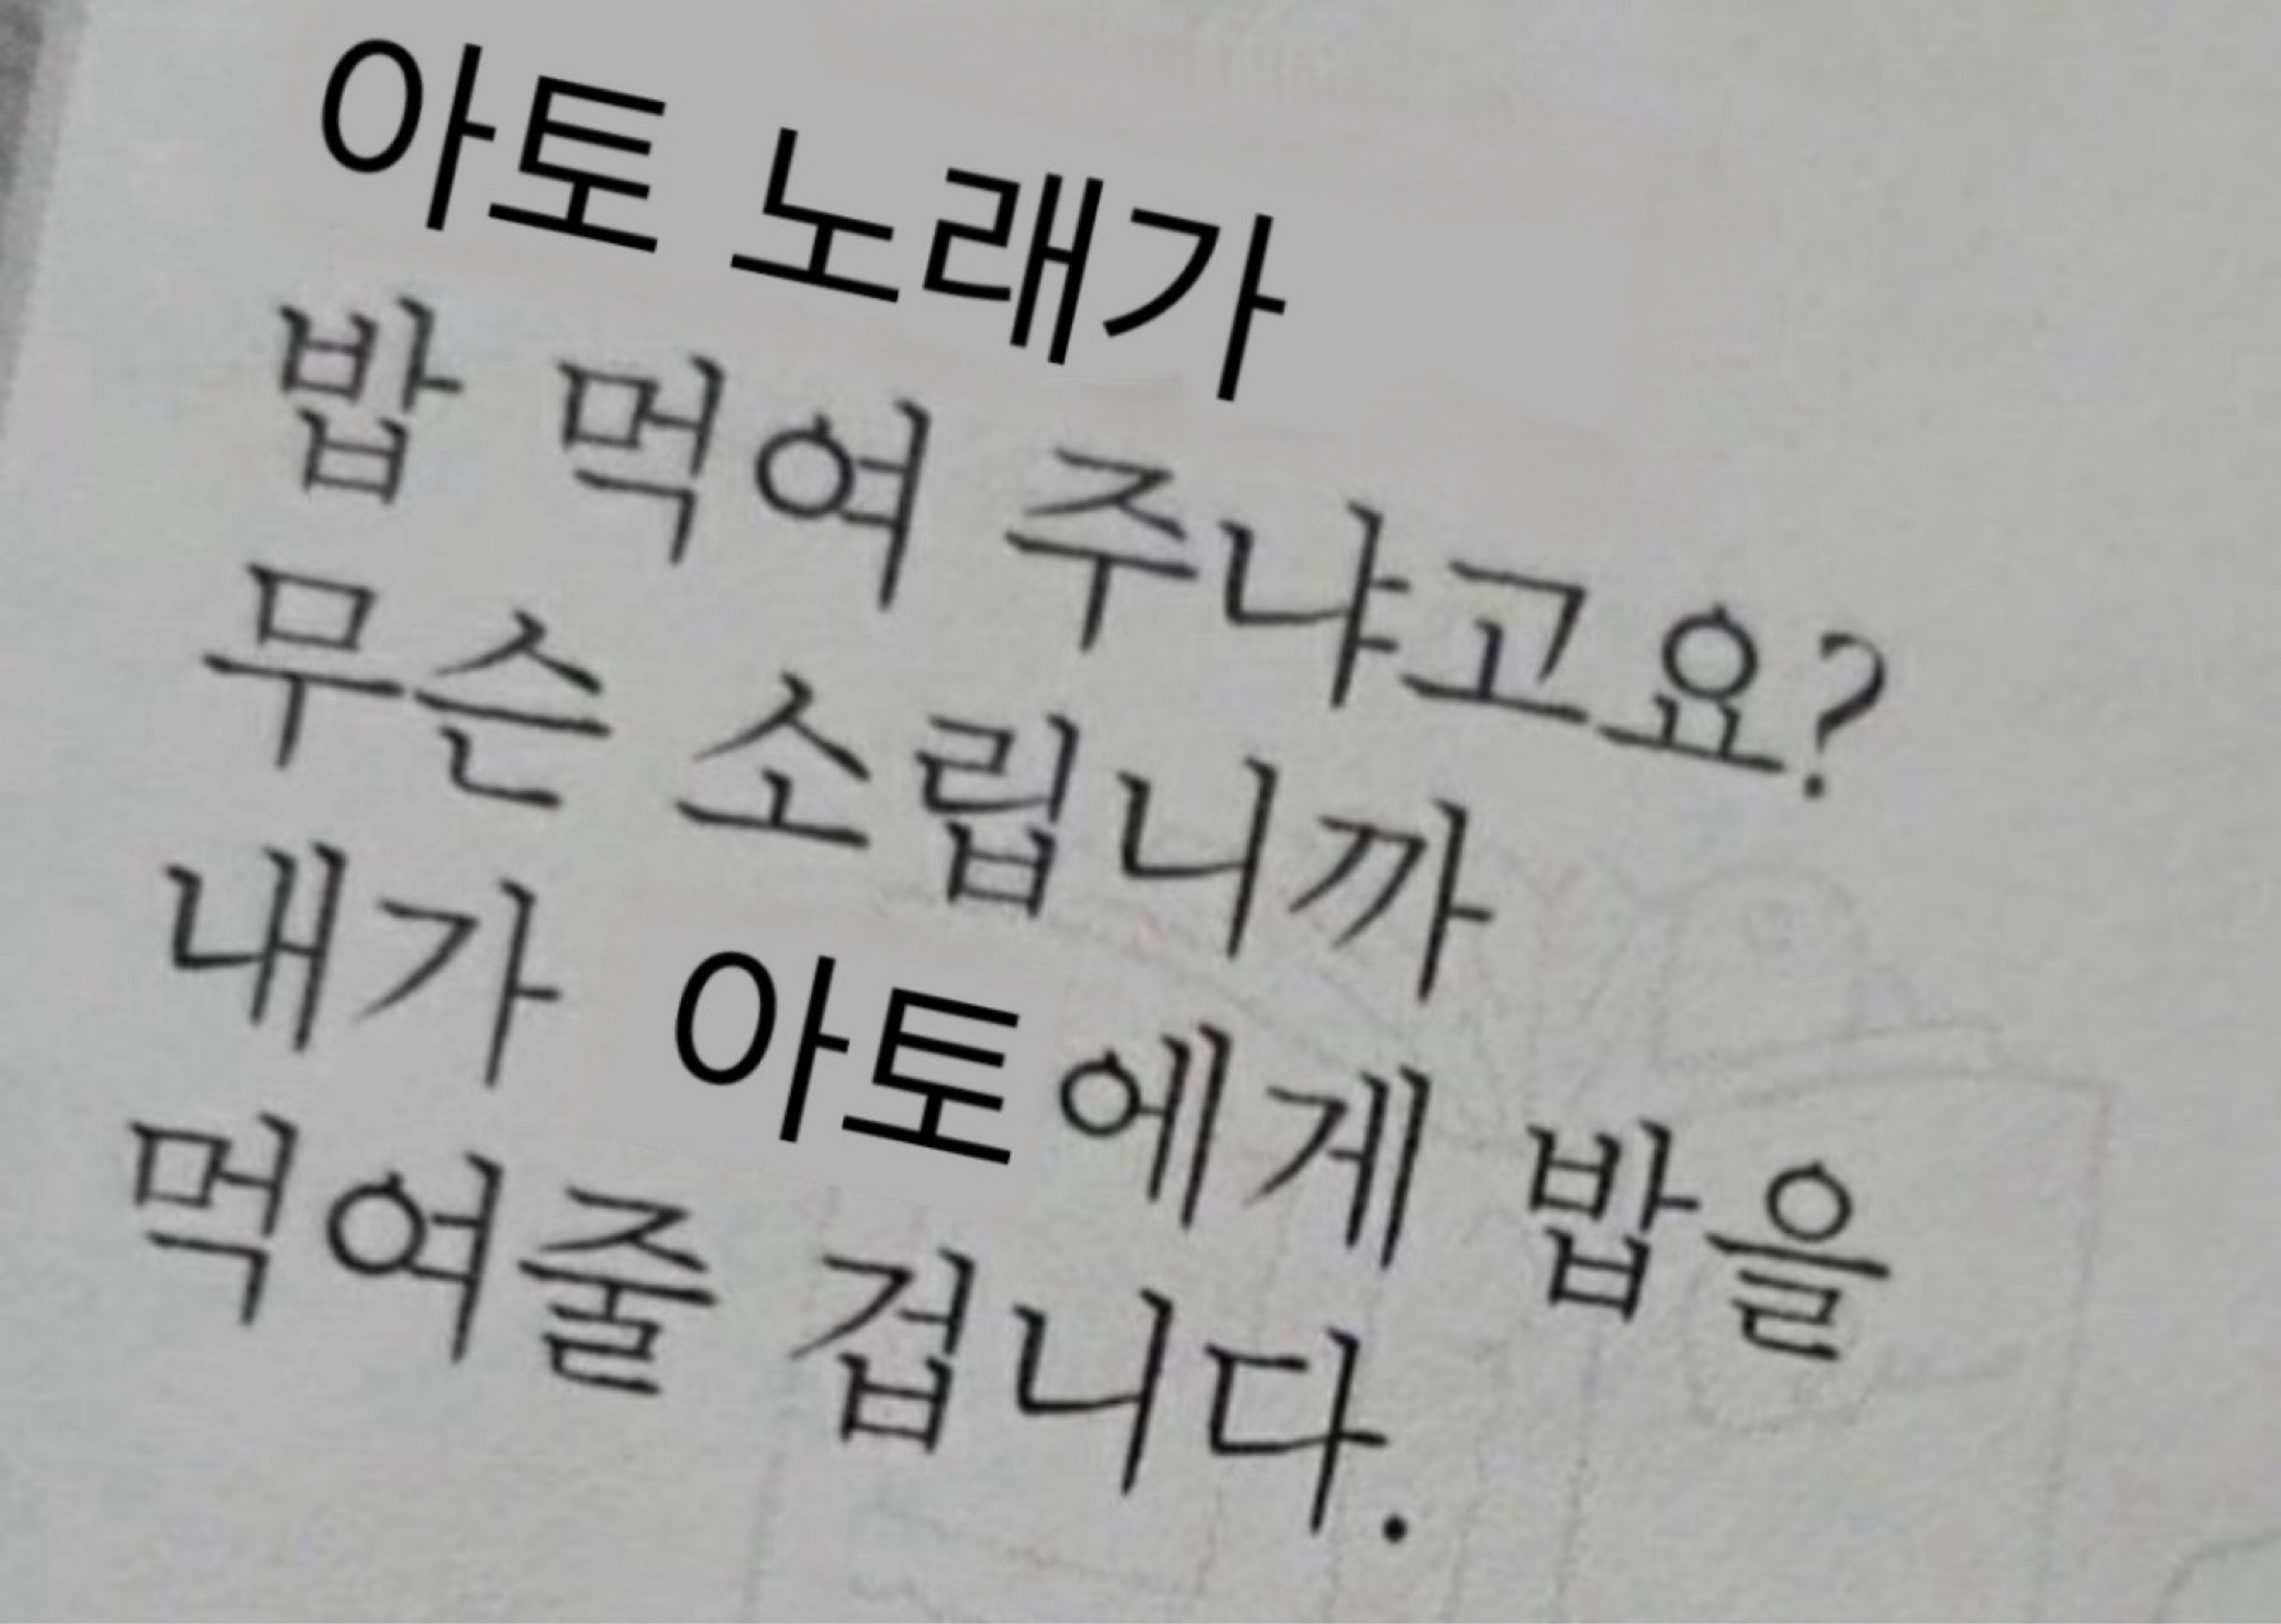 아토 노래가
밥 먹여 주냐고요?
무슨 소립니까
내가 아토에게 밥을
먹여줄 겁니다.